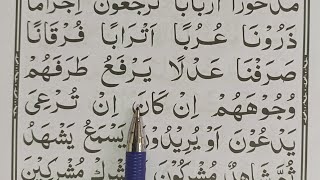 مَدْحُورًا اَرْبَابًا تُرْجَعُونَ اِجْرَامًا
ذَرُوْنَا عُرُبًا اَتْرَابًا فُرْقَانًا
صَرَفْنَا عَدْلًا يَرْفَعُ طَرَفَهُمْ
وُجُوْهَهُمْ اِنْ كَانَ اِنْ تُرْعَىٰ
يَدْعُونَ اَوْ يُرِيْدُونَ يَسْمَعُ يَشْهَدُ
ثُمَّ شَاهِدٌ مُشْرِكُونَ مُشْرِكِيْنَ